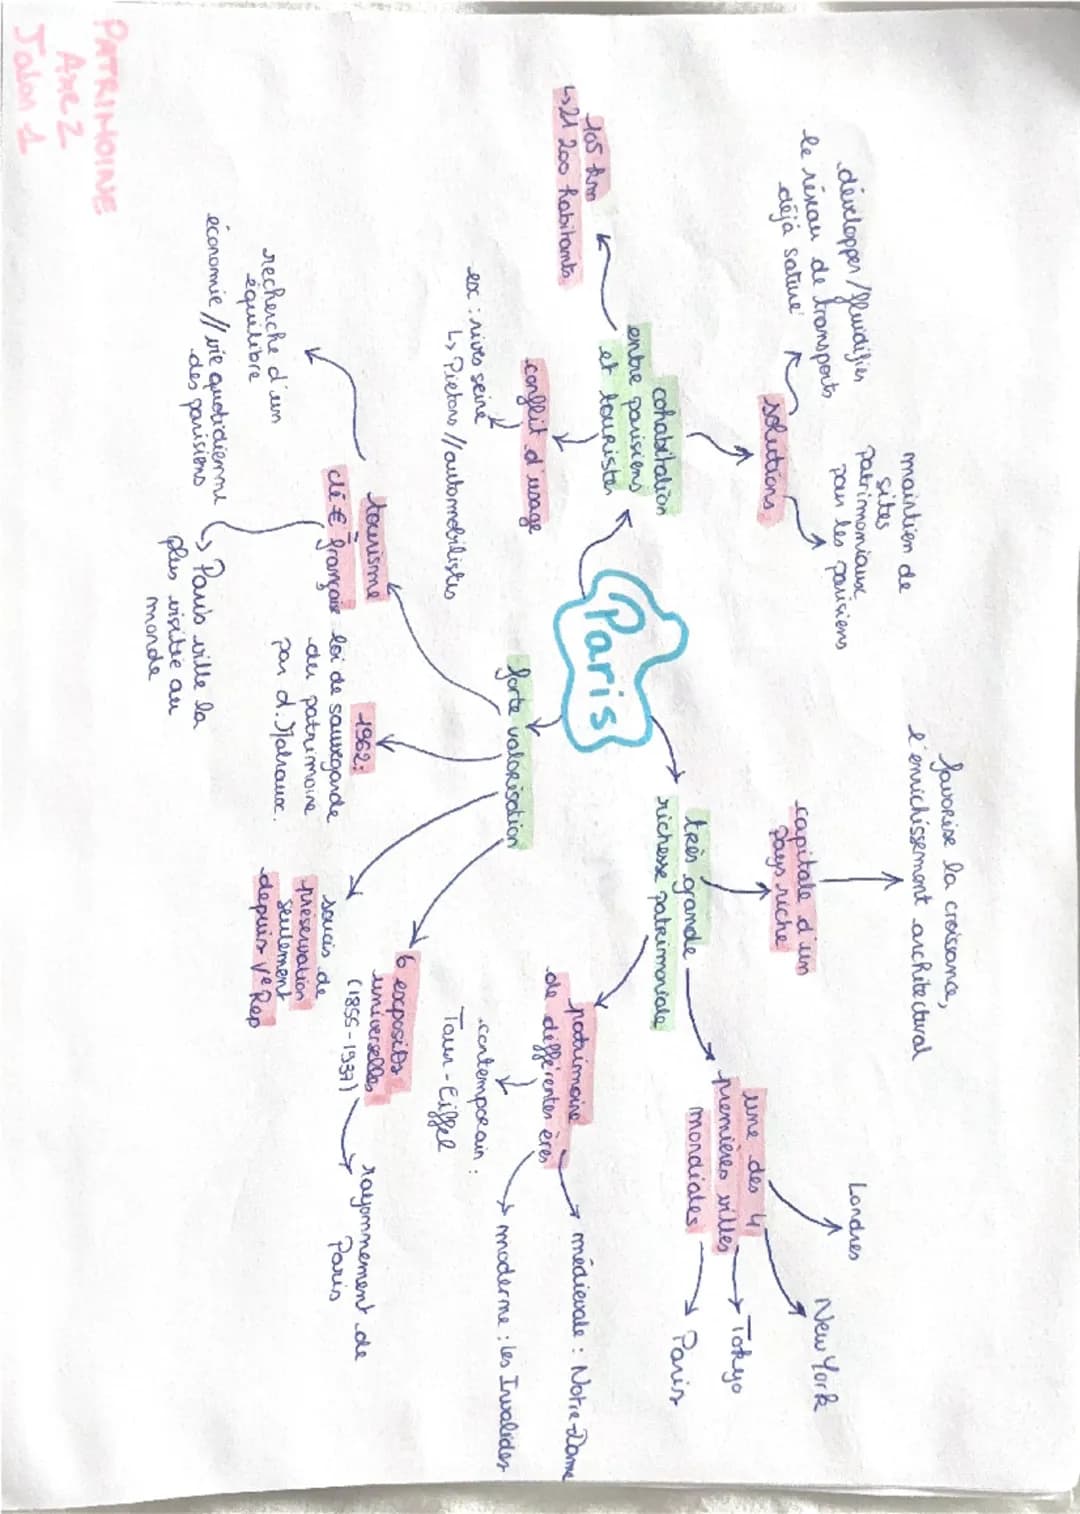 PATRIMOINE
Axe 2
Jalon 1
Paris
cohabitation
entre parisiens
et touristes
105 km
↳ 21 200 habitants
conflit d'usage
ex : rives seine
↳ Pietons // automobilistes
solutions
développer / fluidifier
le réseau de transports
déjà saturé
maintien de
sites
patrimoniaux
par les parisiens
très grande
richesse patrimoniale
capitale d'un
pays riche
favorise la croissance,
l'enrichissement architectural
une des 4
premières villes
mondiales
Londres
New York
Tokyo
Paris
patrimoine
de différentes ères
médiévale : Notre-Dame
moderne : les Invalides
contemporain :
Tour-Eiffel
forte valorisation
tourisme
clé € française
recherche d'un
équilibre
économie // vie quotidienne
des parisiens
↳ Paris ville la
plus visitée au
monde
1962 :
loi de sauvegarde
du patrimoine
par d. Malraux.
soucis de
préservation
seulement
depuis Ve Rep
6 exposit°s
universelles
(1855-1937)
rayonnement de
Paris